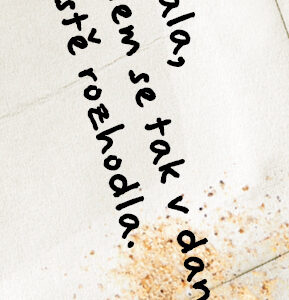 ala,
em se tak v dan
stě rozhodla.